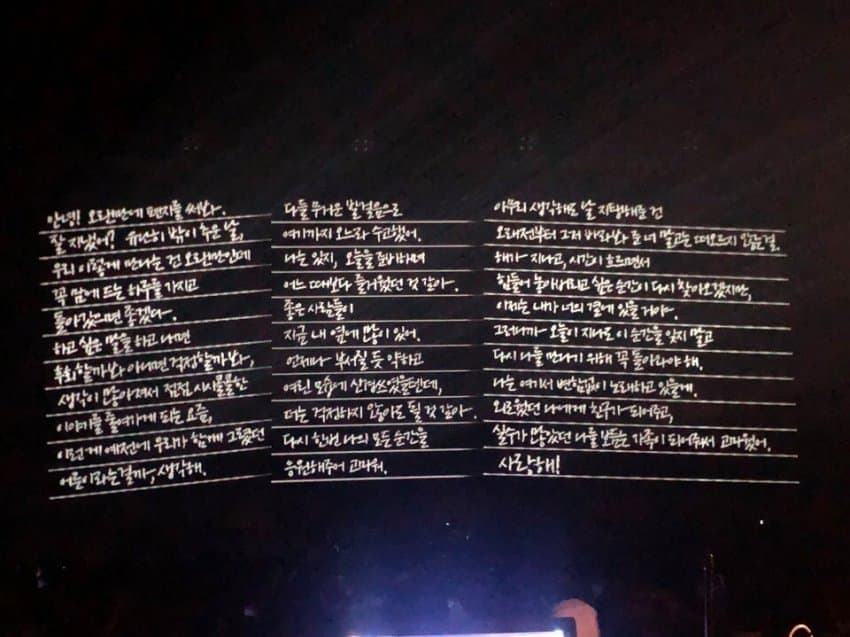 안녕! 오랜만에 편지를 써봐.
잘 지냈어? 유난히 밖이 추운 날,
우리 이렇게 만나는 건 오랜만인데
꼭 맘에 드는 하루를 가지고
돌아갔으면 좋겠다.
하고 싶은 말을 하고 나면
후회할까봐 아니면 걱정할까봐,
생각이 많아져서 점점 시시콜콜한
이야기를 줄여가게 되는 요즘,
이런 게 예전에 우리가 함께 그렸던
어른이라는걸까, 생각해.
다들 무거운 발걸음으로
여기까지 오느라 수고했어.
나는 있지, 오늘을 준비하며
어느 때보다 즐거웠던 것 같아.
좋은 사람들이
지금 내 옆에 많이 있어.
언제나 부서질 듯 약하고
여린 모습에 신경쓰였을텐데,
더는 걱정하지 않아도 될 것 같아.
다시 한번 나의 모든 순간을
응원해주어 고마워.
아무리 생각해도 날 지탱해준 건
오래전부터 그저 바라봐 준 너 말고는 떠오르지 않는걸.
해가 지나고, 시간이 흐르면서
힘들어 놓아버리고 싶은 순간이 다시 찾아오겠지만,
이제는 내가 너의 곁에 있을거야.
그러니까 오늘이 지나도 이 순간을 잊지 말고
다시 나를 만나기 위해 꼭 돌아와야 해.
나는 여기서 변함없이 노래하고 있을게.
외로웠던 나에게 친구가 되어주고,
실수가 많았던 나를 보듬는 가족이 되어줘서 고마웠어.
사랑해!